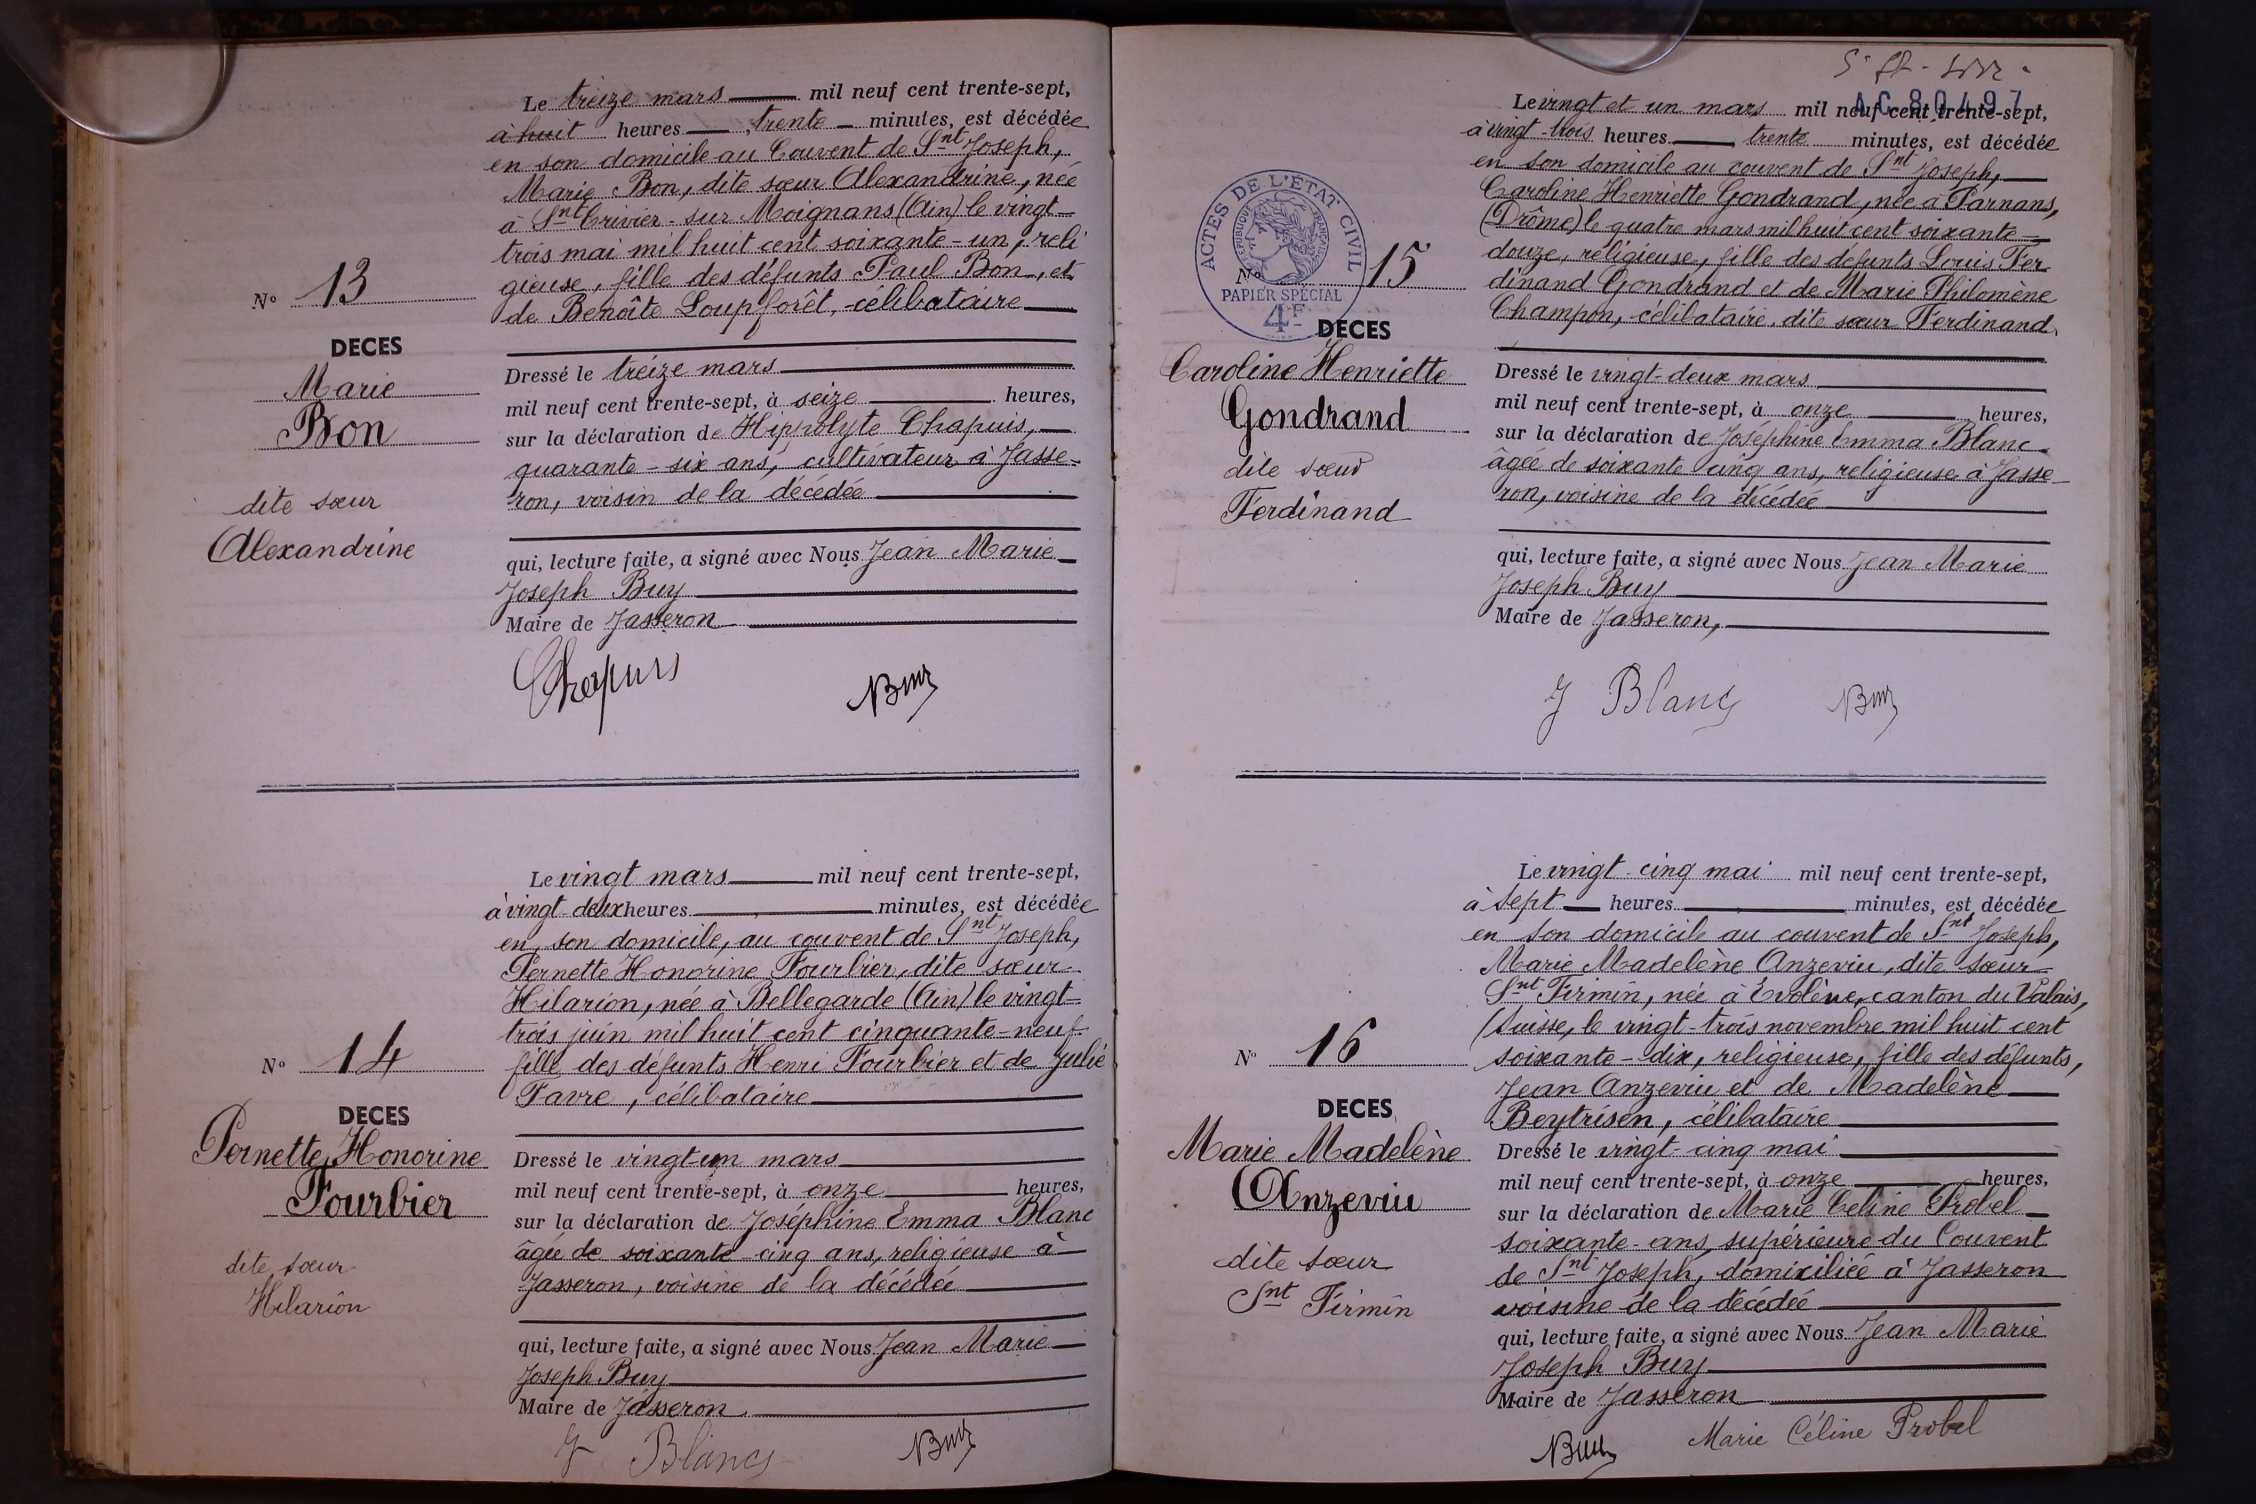 Le treize mars mil neuf cent trente-sept,
à huit heures trente minutes, est décédée
en son domicile au Couvent de Snt Joseph,
Marie Bon, dite sœur Alexandrine, née
à Snt Trivier-sur Moignans (Ain) le vingt-
trois mai mil huit cent soixante-un, reli
gieuse, fille des défunts Paul Bon, et
de Benoîte Loupforêt, célibataire
N° 13
DECES
Marie
Bon
dite sœur
Alexandrine
Dressé le treize mars
mil neuf cent trente-sept, à seize heures,
sur la déclaration de Hippolyte Chapuis,
quarante-six ans, cultivateur à Jasse-
ron, voisin de la décédée
qui, lecture faite, a signé avec Nous Jean Marie
Joseph Buy
Maire de Jasseron
Chapuis Buy
Le vingt mars mil neuf cent trente-sept,
à vingt-deux heures minutes, est décédée
en son domicile, au couvent de Snt Joseph,
Pernette Honorine Fourbier, dite sœur
Hilarion, née à Bellegarde (Ain) le vingt-
trois juin mil huit cent cinquante-neuf
fille des défunts Henri Fourbier et de Julie
Favre, célibataire
N° 14
DECES
Pernette Honorine
Fourbier
dite sœur
Hilarion
Dressé le vingt-un mars
mil neuf cent trente-sept, à onze heures,
sur la déclaration de Joséphine Emma Blanc
âgée de soixante-cinq ans, religieuse à
Jasseron, voisine de la décédée
qui, lecture faite, a signé avec Nous Jean Marie
Joseph Buy
Maire de Jasseron.
J Blanc Buy
AC 80497
Le vingt et un mars mil neuf cent trente-sept,
à vingt-trois heures trente minutes, est décédée
en son domicile au couvent de Snt Joseph,
Caroline Henriette Gondrand, née à Parnans,
(Drôme) le quatre mars mil huit cent soixante-
douze, religieuse, fille des défunts Louis Fer
dinand Gondrand et de Marie Philomène
Champon, célibataire, dite sœur Ferdinand.
ACTES DE L'ÉTAT CIVIL
RÉPUBLIQUE FRANÇAISE
PAPIER SPÉCIAL
4F
N° 15
DECES
Caroline Henriette
Gondrand
dite sœur
Ferdinand
Dressé le vingt-deux mars
mil neuf cent trente-sept, à onze heures,
sur la déclaration de Joséphine Emma Blanc
âgée de soixante cinq ans, religieuse à Jasse-
ron, voisine de la décédée
qui, lecture faite, a signé avec Nous Jean Marie
Joseph Buy
Maire de Jasseron,
J Blanc Buy
Le vingt-cinq mai mil neuf cent trente-sept,
à sept heures minutes, est décédée
en son domicile au couvent de Snt Joseph,
Marie Madelène Anzeviu, dite sœur
Snt Firmin, née à Evolène, canton du Valais,
(Suisse, le vingt-trois novembre mil huit cent
soixante-dix, religieuse, fille des défunts,
Jean Anzeviu et de Madelène
Beytrisen, célibataire
N° 16
DECES
Marie Madelène
Anzeviu
dite sœur
Snt Firmin
Dressé le vingt-cinq mai
mil neuf cent trente-sept, à onze heures,
sur la déclaration de Marie Céline Probel
soixante-ans, supérieure du Couvent
de Snt Joseph, domiciliée à Jasseron
voisine de la décédée
qui, lecture faite, a signé avec Nous Jean Marie
Joseph Buy
Maire de Jasseron
Buy Marie Céline Probel